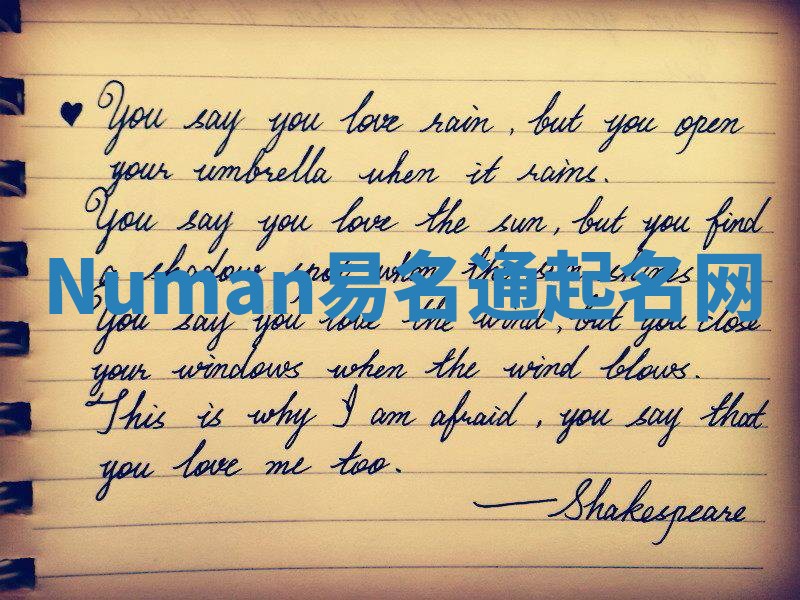 ♥ You say you love rain, but you open
your umbrella when it rains.
You say you love the sun, but you find
a shadow spot when the sun shines
Numan易名通起名网
You say you love the wind, but you close
your windows when the wind blows.
This is why I am afraid, you say that
you love me too.
—Shakespeare